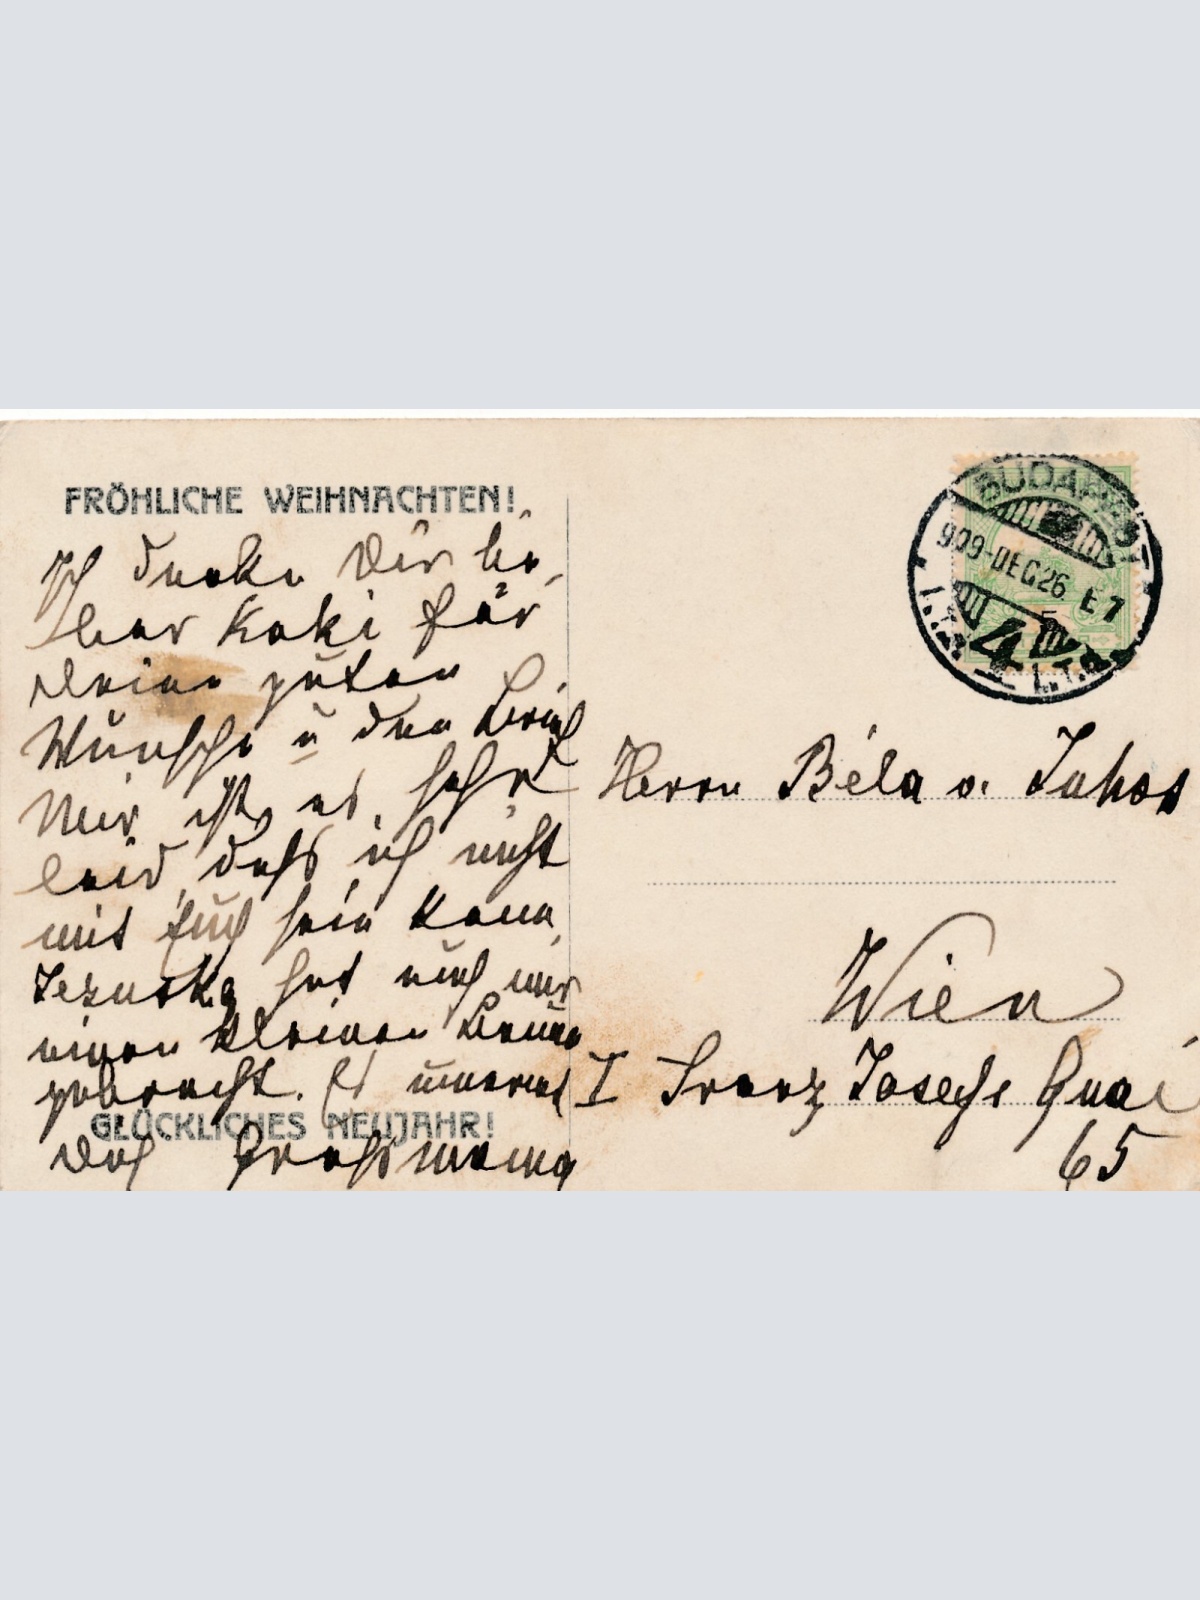 FRÖHLICHE WEIHNACHTEN!
Ich danke Dir lie,
ber Koki für
Deine guten
Wünsche u den Brief
Mir ist es sehr
leid, dass ich nicht
mit Euch sein kann,
Jezuska hat auch mir
einen kleinen
gebracht. Es umarmt
GLÜCKLICHES NEUJAHR!
Dich Grossmama
BUDAPEST
909-DEC 26. E7
4
Herrn Béla v.
Wien
I Franz Josephs Quai
65